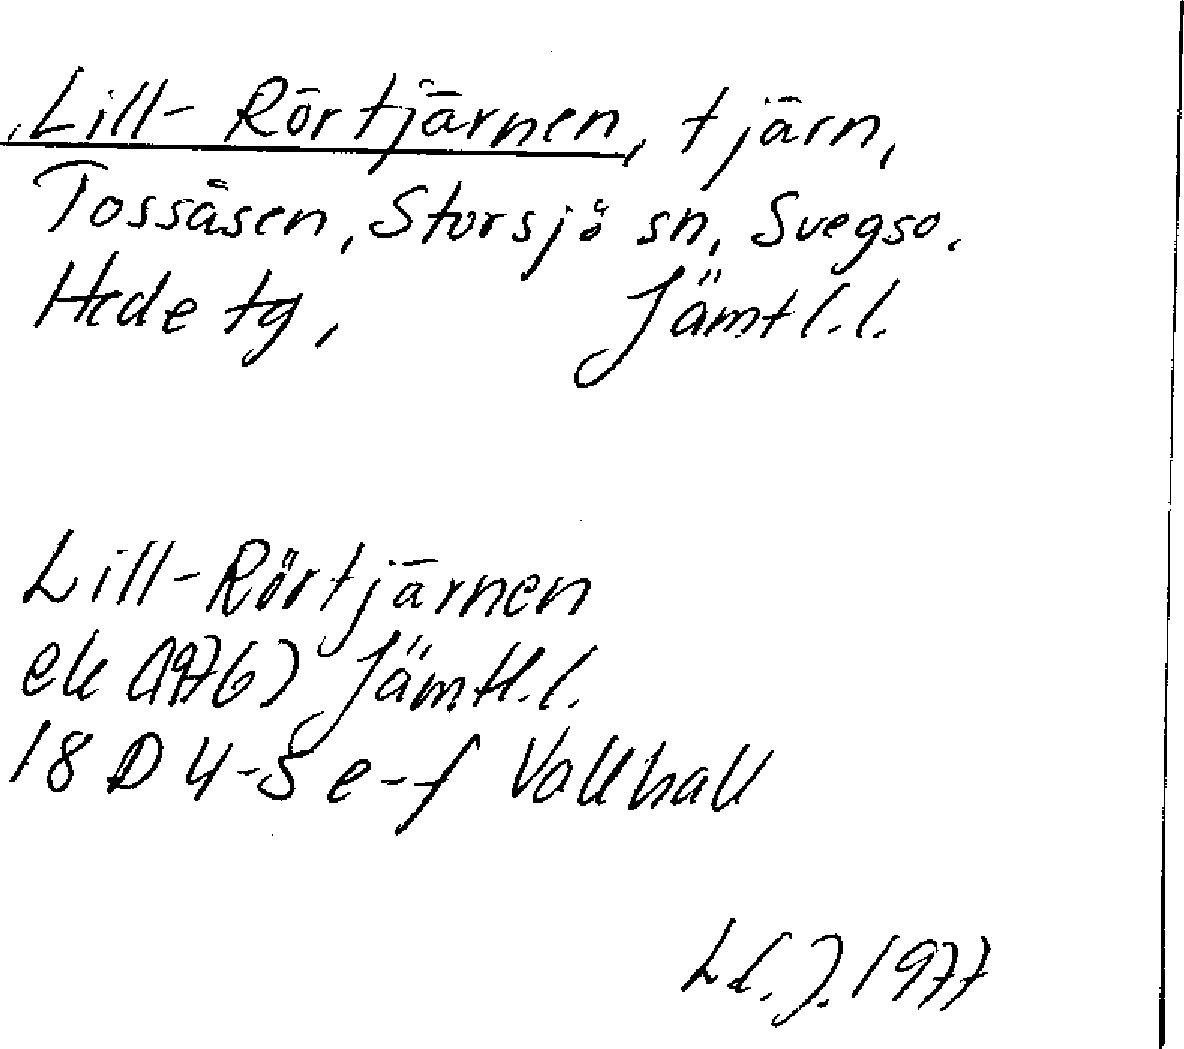 Lill-Rörtjärnen, tjärn,
Tossåsen, Storsjö sn, Svegso.
Hede tg, Jämtl.l.
Lill-Rörtjärnen
ek (1976) Jämtl.l.
18 D 4-5 e-f Vallhall
Ll.J. 1977